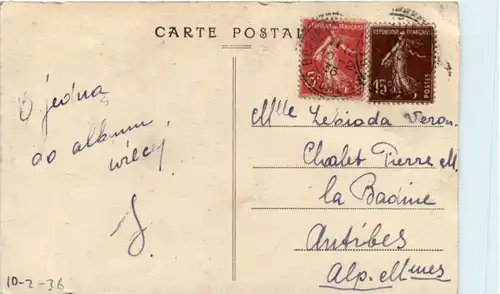 CARTE POSTALE
REPUBLIQUE FRANÇAISE
REPUBLIQUE FRANÇAISE
15c
POSTES
O jedną
do albumu,
więcej
J.
10-2-36
Mlle Zebioda Veron.
Chalet Pierre M.
la Badine
Antibes
Alp. Mmes